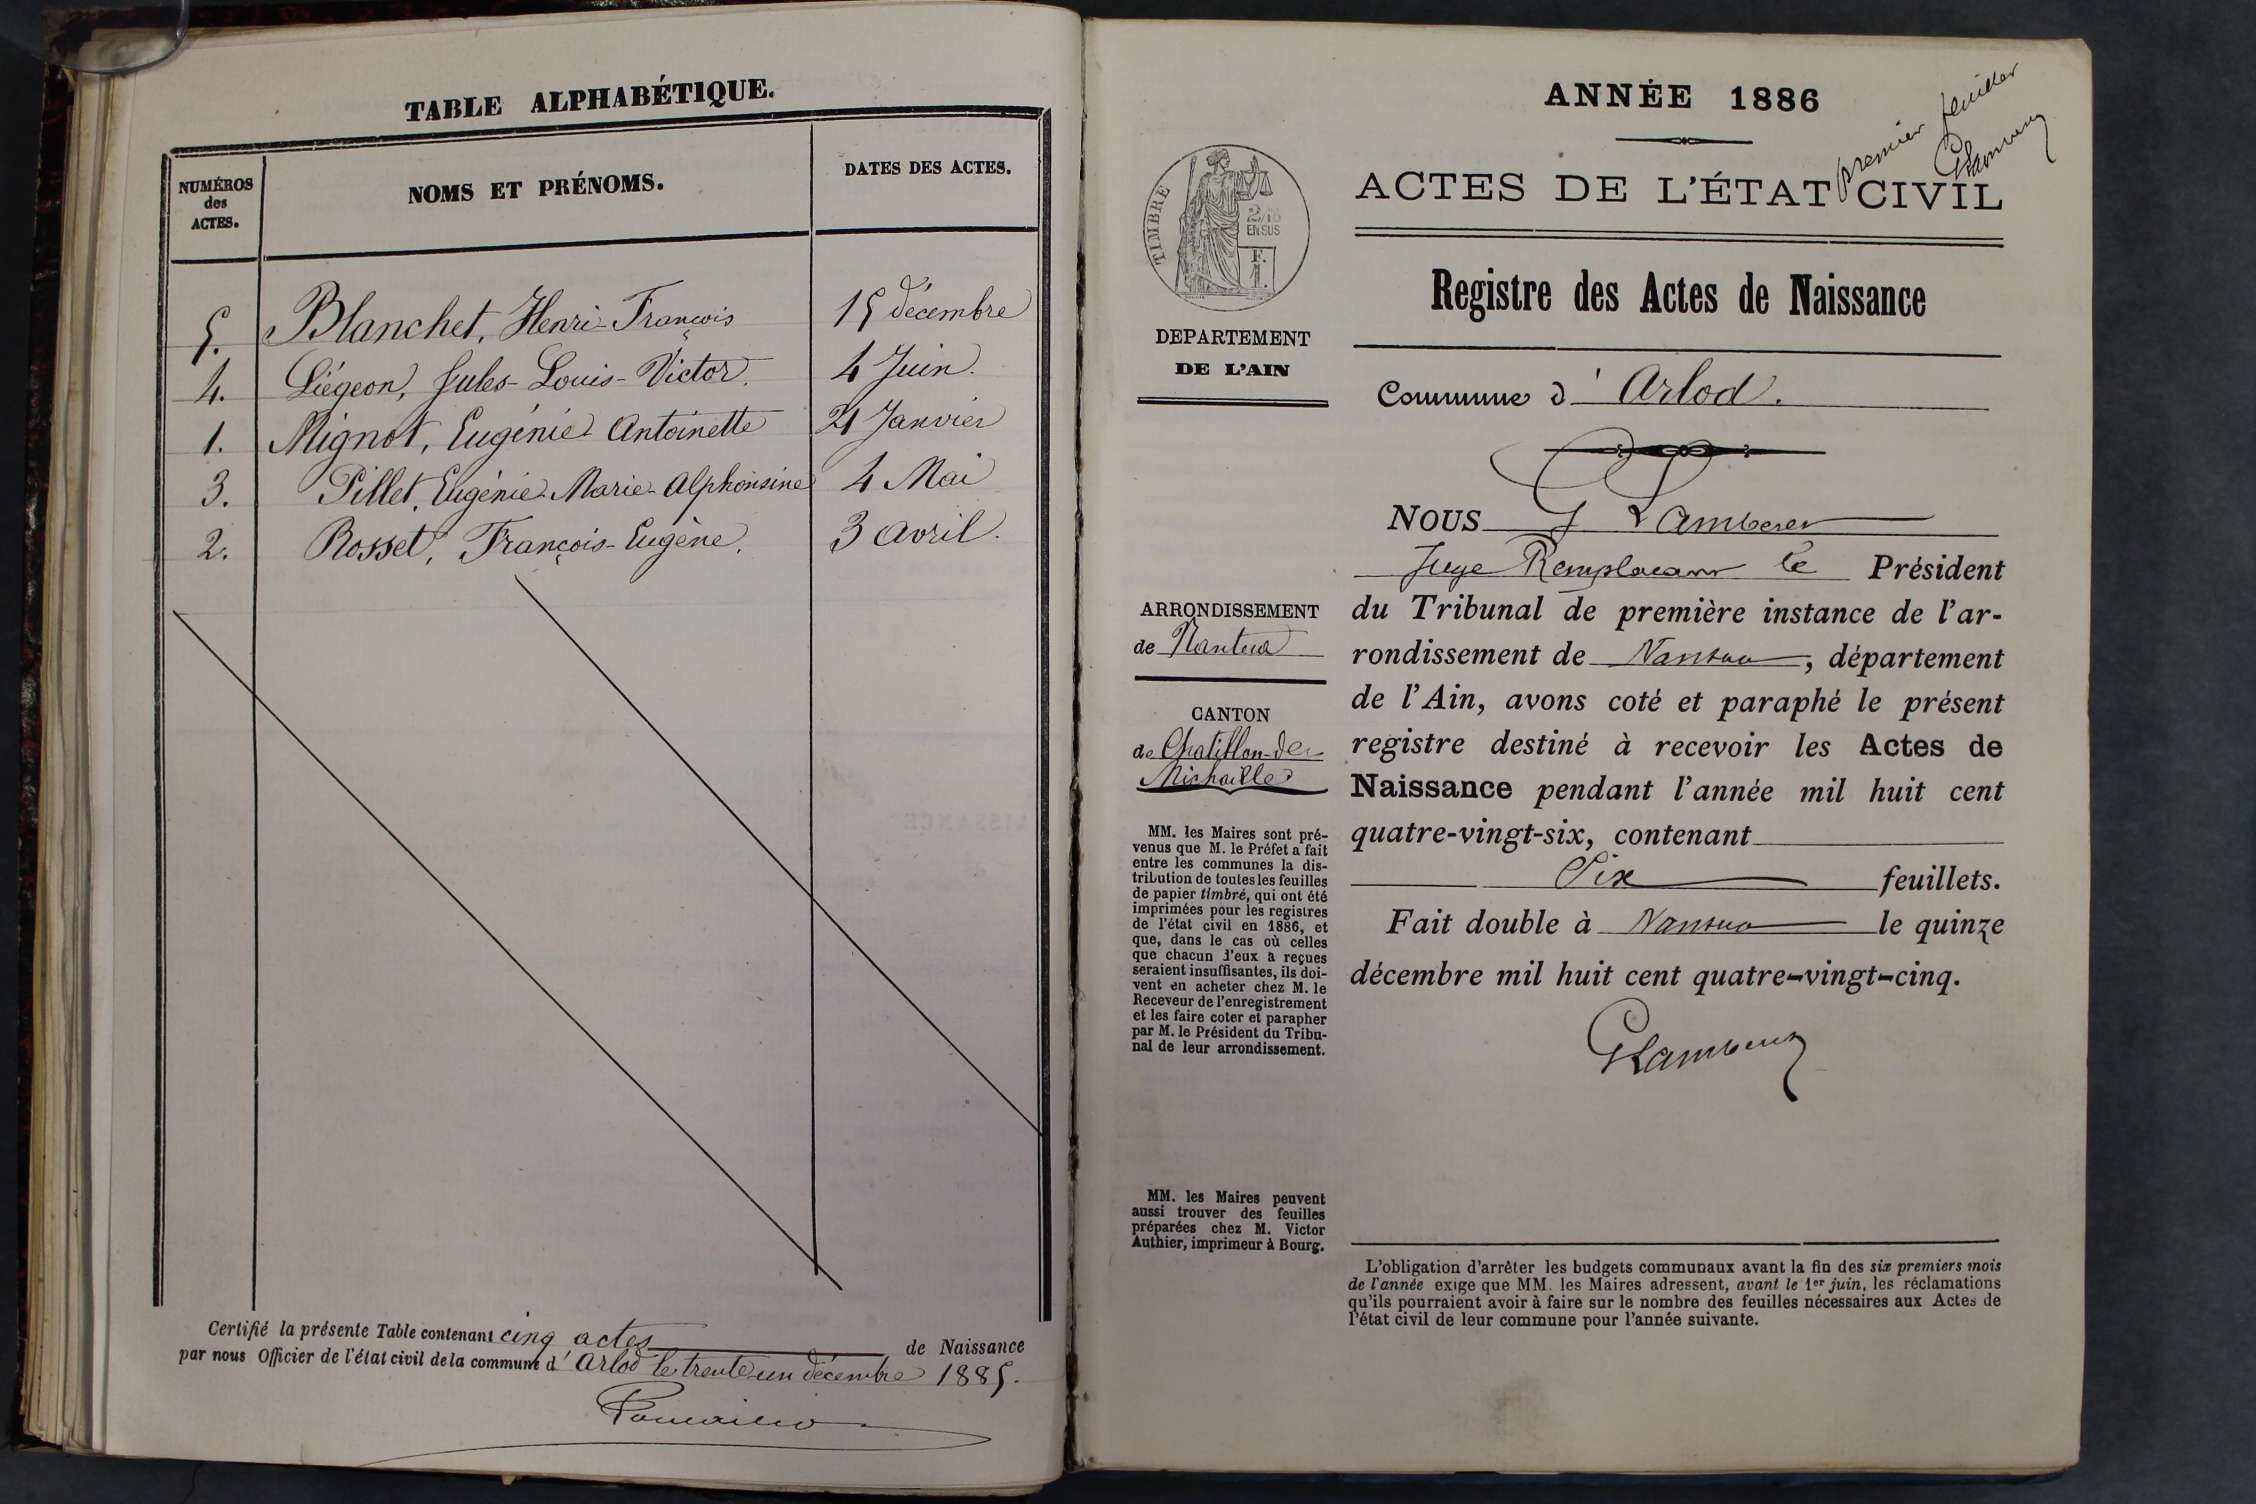 TABLE ALPHABÉTIQUE.
NUMÉROS
des
ACTES.
NOMS ET PRÉNOMS.
DATES DES ACTES.
5. Blanchet, Henri-François 15 décembre
4. Liégeon, Jules-Louis-Victor. 4 Juin.
1. Mignot, Eugénie-Antoinette 24 Janvier
3. Pillet, Eugénie-Marie-Alphonsine 4 Mai
2. Rosset, François-Eugène. 3 avril.
Certifié la présente Table contenant cinq actes de Naissance
par nous Officier de l'état civil de la commune d'Arlod le trente un décembre 1885.
premier feuillet
ANNÉE 1886
ACTES DE L'ÉTAT CIVIL
TIMBRE
2/10
EN SUS
F.
1.
Registre des Actes de Naissance
DEPARTEMENT
DE L'AIN
Commune d'Arlod.
NOUS
Juge Remplacant le Président
du Tribunal de première instance de l'ar-
rondissement de Nantua, département
de l'Ain, avons coté et paraphé le présent
registre destiné à recevoir les Actes de
Naissance pendant l'année mil huit cent
quatre-vingt-six, contenant
Six feuillets.
Fait double à Nantua le quinze
décembre mil huit cent quatre-vingt-cinq.
ARRONDISSEMENT
de Nantua
CANTON
de Chatillon-de-
Michaille
MM. les Maires sont pré-
venus que M. le Préfet a fait
entre les communes la dis-
tribution de toutes les feuilles
de papier timbré, qui ont été
imprimées pour les registres
de l'état civil en 1886, et
que, dans le cas où celles
que chacun d'eux a reçues
seraient insuffisantes, ils doi-
vent en acheter chez M. le
Receveur de l'enregistrement
et les faire coter et parapher
par M. le Président du Tribu-
nal de leur arrondissement.
MM. les Maires peuvent
aussi trouver des feuilles
préparées chez M. Victor
Authier, imprimeur à Bourg.
L'obligation d'arrêter les budgets communaux avant la fin des six premiers mois
de l'année exige que MM. les Maires adressent, avant le 1er juin, les réclamations
qu'ils pourraient avoir à faire sur le nombre des feuilles nécessaires aux Actes de
l'état civil de leur commune pour l'année suivante.